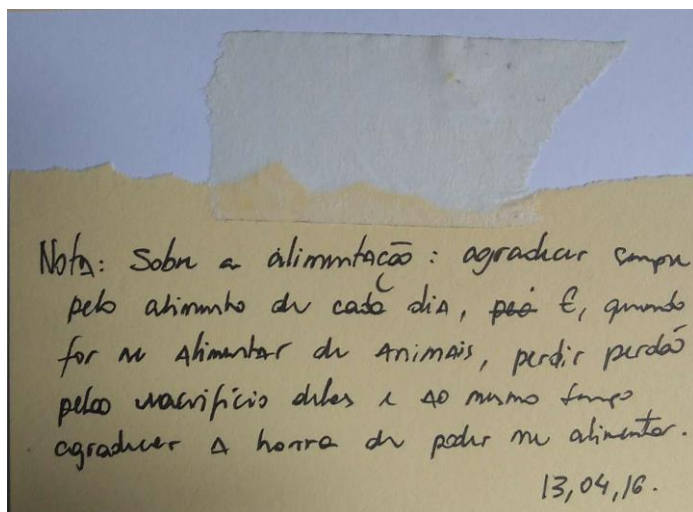 Nota: Sobre a alimentação: agradecer sempre
pelo alimento de cada dia, pelo E, quando
for me Alimentar de Animais, perdir perdão
pelo sacrifício deles e ao mesmo tempo
agradecer A honra de poder me alimentar.
13,04,16.